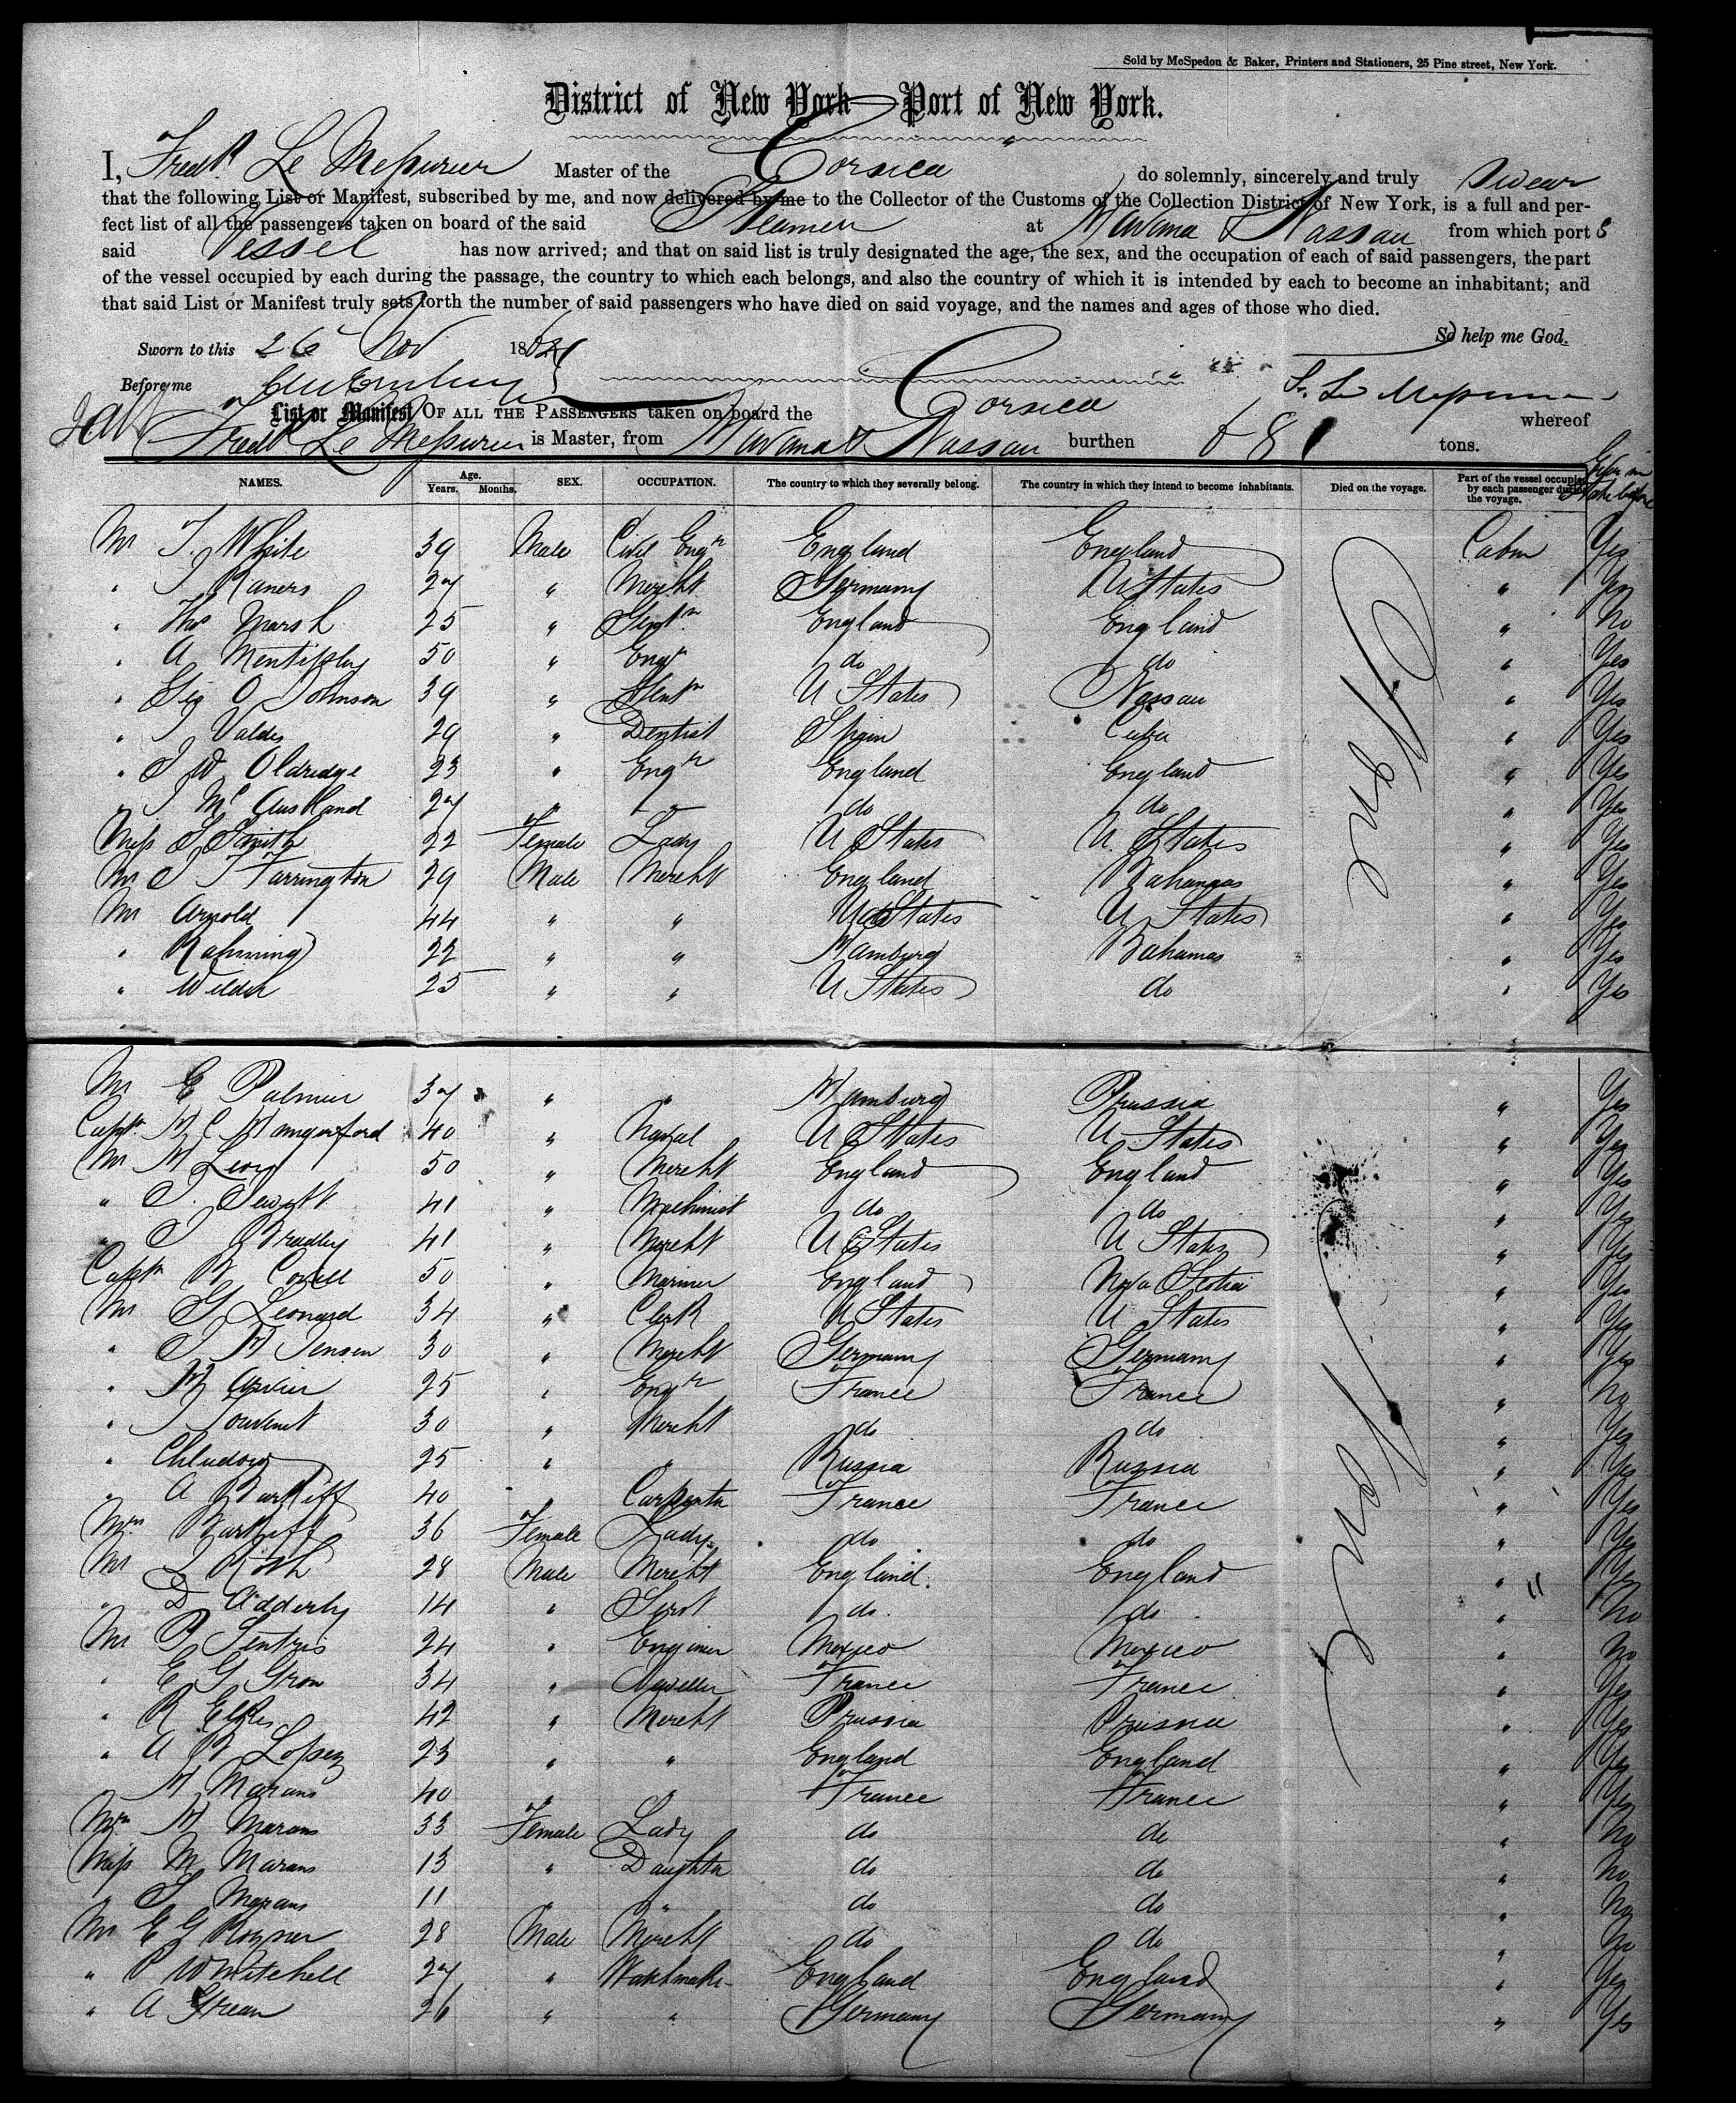 Sold by McSpedon & Baker, Printers and Stationers, 25 Pine street, New York.
District of New York — Port of New York.
I, Fredk Le Messurier Master of the Corsica do solemnly, sincerely and truly swear
that the following List or Manifest, subscribed by me, and now delivered by me to the Collector of the Customs of the Collection District of New York, is a full and per-
fect list of all the passengers taken on board of the said Steamer at Havana & Nassau from which port s
said Vessel has now arrived; and that on said list is truly designated the age, the sex, and the occupation of each of said passengers, the part
of the vessel occupied by each during the passage, the country to which each belongs, and also the country of which it is intended by each to become an inhabitant; and
that said List or Manifest truly sets forth the number of said passengers who have died on said voyage, and the names and ages of those who died.
So help me God.
Sworn to this 26 Nov 186
Before me F. Le Messurier
List or Manifest OF ALL THE PASSENGERS taken on board the Corsica whereof
Fredk Le Messurier is Master, from Havana & Nassau burthen tons.
NAMES. Age. Years. Months. SEX. OCCUPATION. The country to which they severally belong. The country in which they intend to become inhabitants. Died on the voyage. Part of the vessel occupied by each passenger during the voyage.
Mr J. White 39 Male Civil Engr England England Cabin Yes
" J Raners 27 " Mercht Germany U States " Yes
" Thos Marsh 25 " Gentn England England " No
" A 50 " Engr do do " Yes
" Geo O Johnson 39 " Gentn U States Nassau " Yes
" J Valdes 29 " Dentist Spain Cuba " Yes
" J W Oldredge 23 " Engr England England " Yes
" J Mc Ausland 27 " " do do " Yes
Miss S Smith 22 Female Lady U States U. States " Yes
Mr J T Farrington 29 Male Mercht England Bahamas " Yes
Mr Arnold 44 " " U States U States " Yes
" Rahming 22 " " Hamburg Bahamas " Yes
" Wilder 25 " " U States do " Yes
Mr E Palmer 37 " " Hamburg Prussia " Yes
Captn H C Hungerford 40 " Naval U States U States " Yes
Mr H Levy 50 " Mercht England England " Yes
" J. 41 " Machinist do do " Yes
" J Bradley 41 " Mercht U States U States " Yes
Captn W Covell 50 " Mariner England Nova Scotia " Yes
Mr G Leonard 34 " Clerk U States U States " Yes
" J H Jensen 30 " Mercht Germany Germany " Yes
" H 25 " Engr France France " No
" J Tourent 30 " Mercht do do " Yes
" Chludow 25 " " Russia Russia " Yes
" A Barkiff 40 " Carpenter France France " Yes
Mrs Barkiff 36 Female Lady do do " Yes
Mr L Roth 28 Male Mercht England. England " Yes
" D Adderly 14 " Servt do. do. " No
Mr P Sentres 24 " Engineer Mexico Mexico " No
" E G Gron 34 " Jeweller France France " Yes
" R Elkes 42 " Mercht Prussia Prussia " Yes
" A B Lopez 23 " " England England " Yes
" H Marans 40 " " France France " Yes
Mrs H Marans 33 Female Lady do do " No
Miss M Marans 13 " Daughter do do " No
" S Marans 11 " " do do " No
Mr E G Roymer 28 Male Mercht do do " No
" P W Mitchell 27 " Watchmaker England England " Yes
" A Grean 26 " " Germany Germany " Yes
None
None